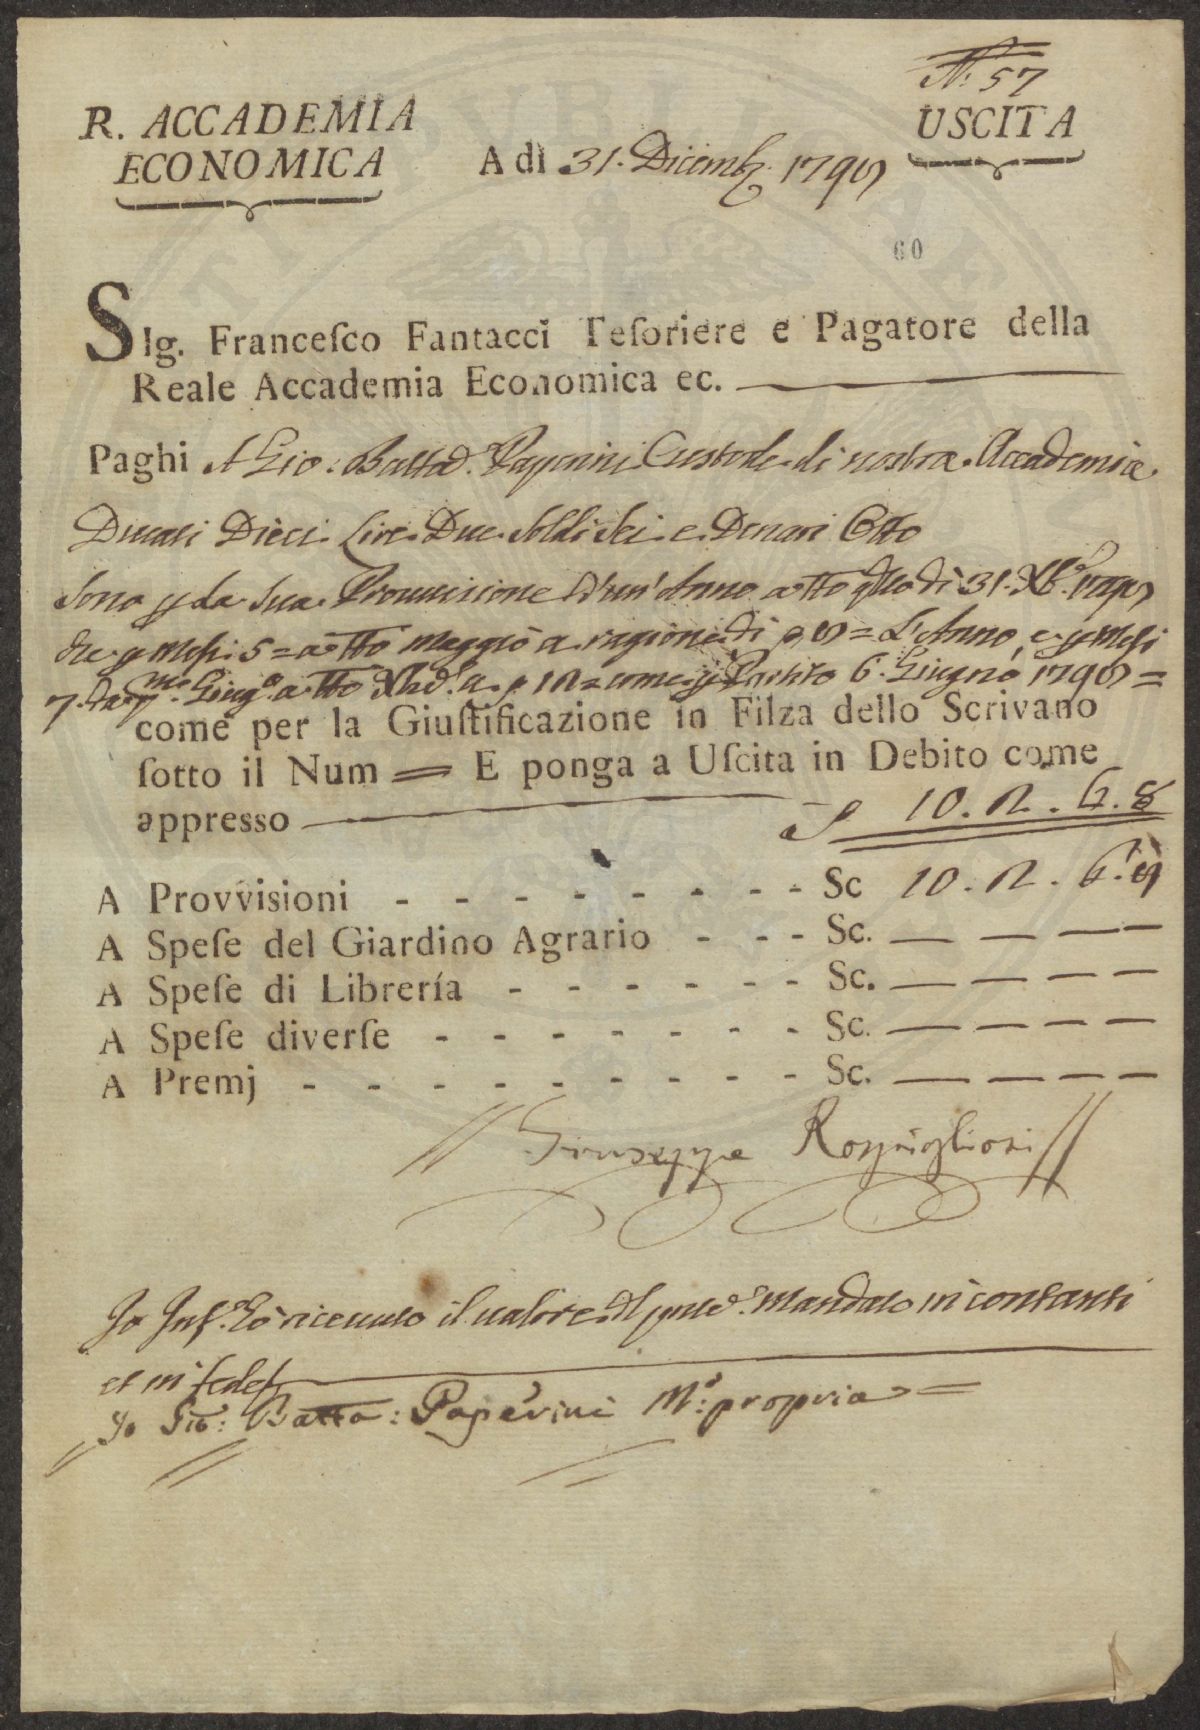 N.° 57
R. ACCADEMIA
ECONOMICA
USCITA
A dì 31. Dicemb.
60
SIg. Franceſco Fantacci Teſoriere e Pagatore della
Reale Accademia Economica ec.
Paghi A Gio: Batta Paperini Custode di nostra Accademia
Ducati Dieci Lire Due Soldi Sei e Denari Otto
Sono p la Sua Provvisione d'un' Anno a tto qllo dì 31. Xbre
che p Mesi 5 = a tto Maggio a ragione di = L'Anno, e p Mesi
7. Giug.° a tto come p Partito 6 Giugno
come per la Giuſtificazione in Filza dello Scrivano
ſotto il Num = E ponga a Uſcita in Debito come
appresso 10. 2. 6. 8
A Provvisioni - - - - - - - Sc 10. 2. 6. 8
A Speſe del Giardino Agrario - - - Sc. — — — —
A Speſe di Librería - - - - - - Sc. — — — —
A Speſe diverſe - - - - - - - Sc. — — — —
A Premj - - - - - - - - - Sc. — — — —
Giuseppe Rospigliosi
Io Inf.° hò ricevuto il valore del pnte Mandato in contanti
et in fede
Io Gio: Batta: Paperini M.° propria =